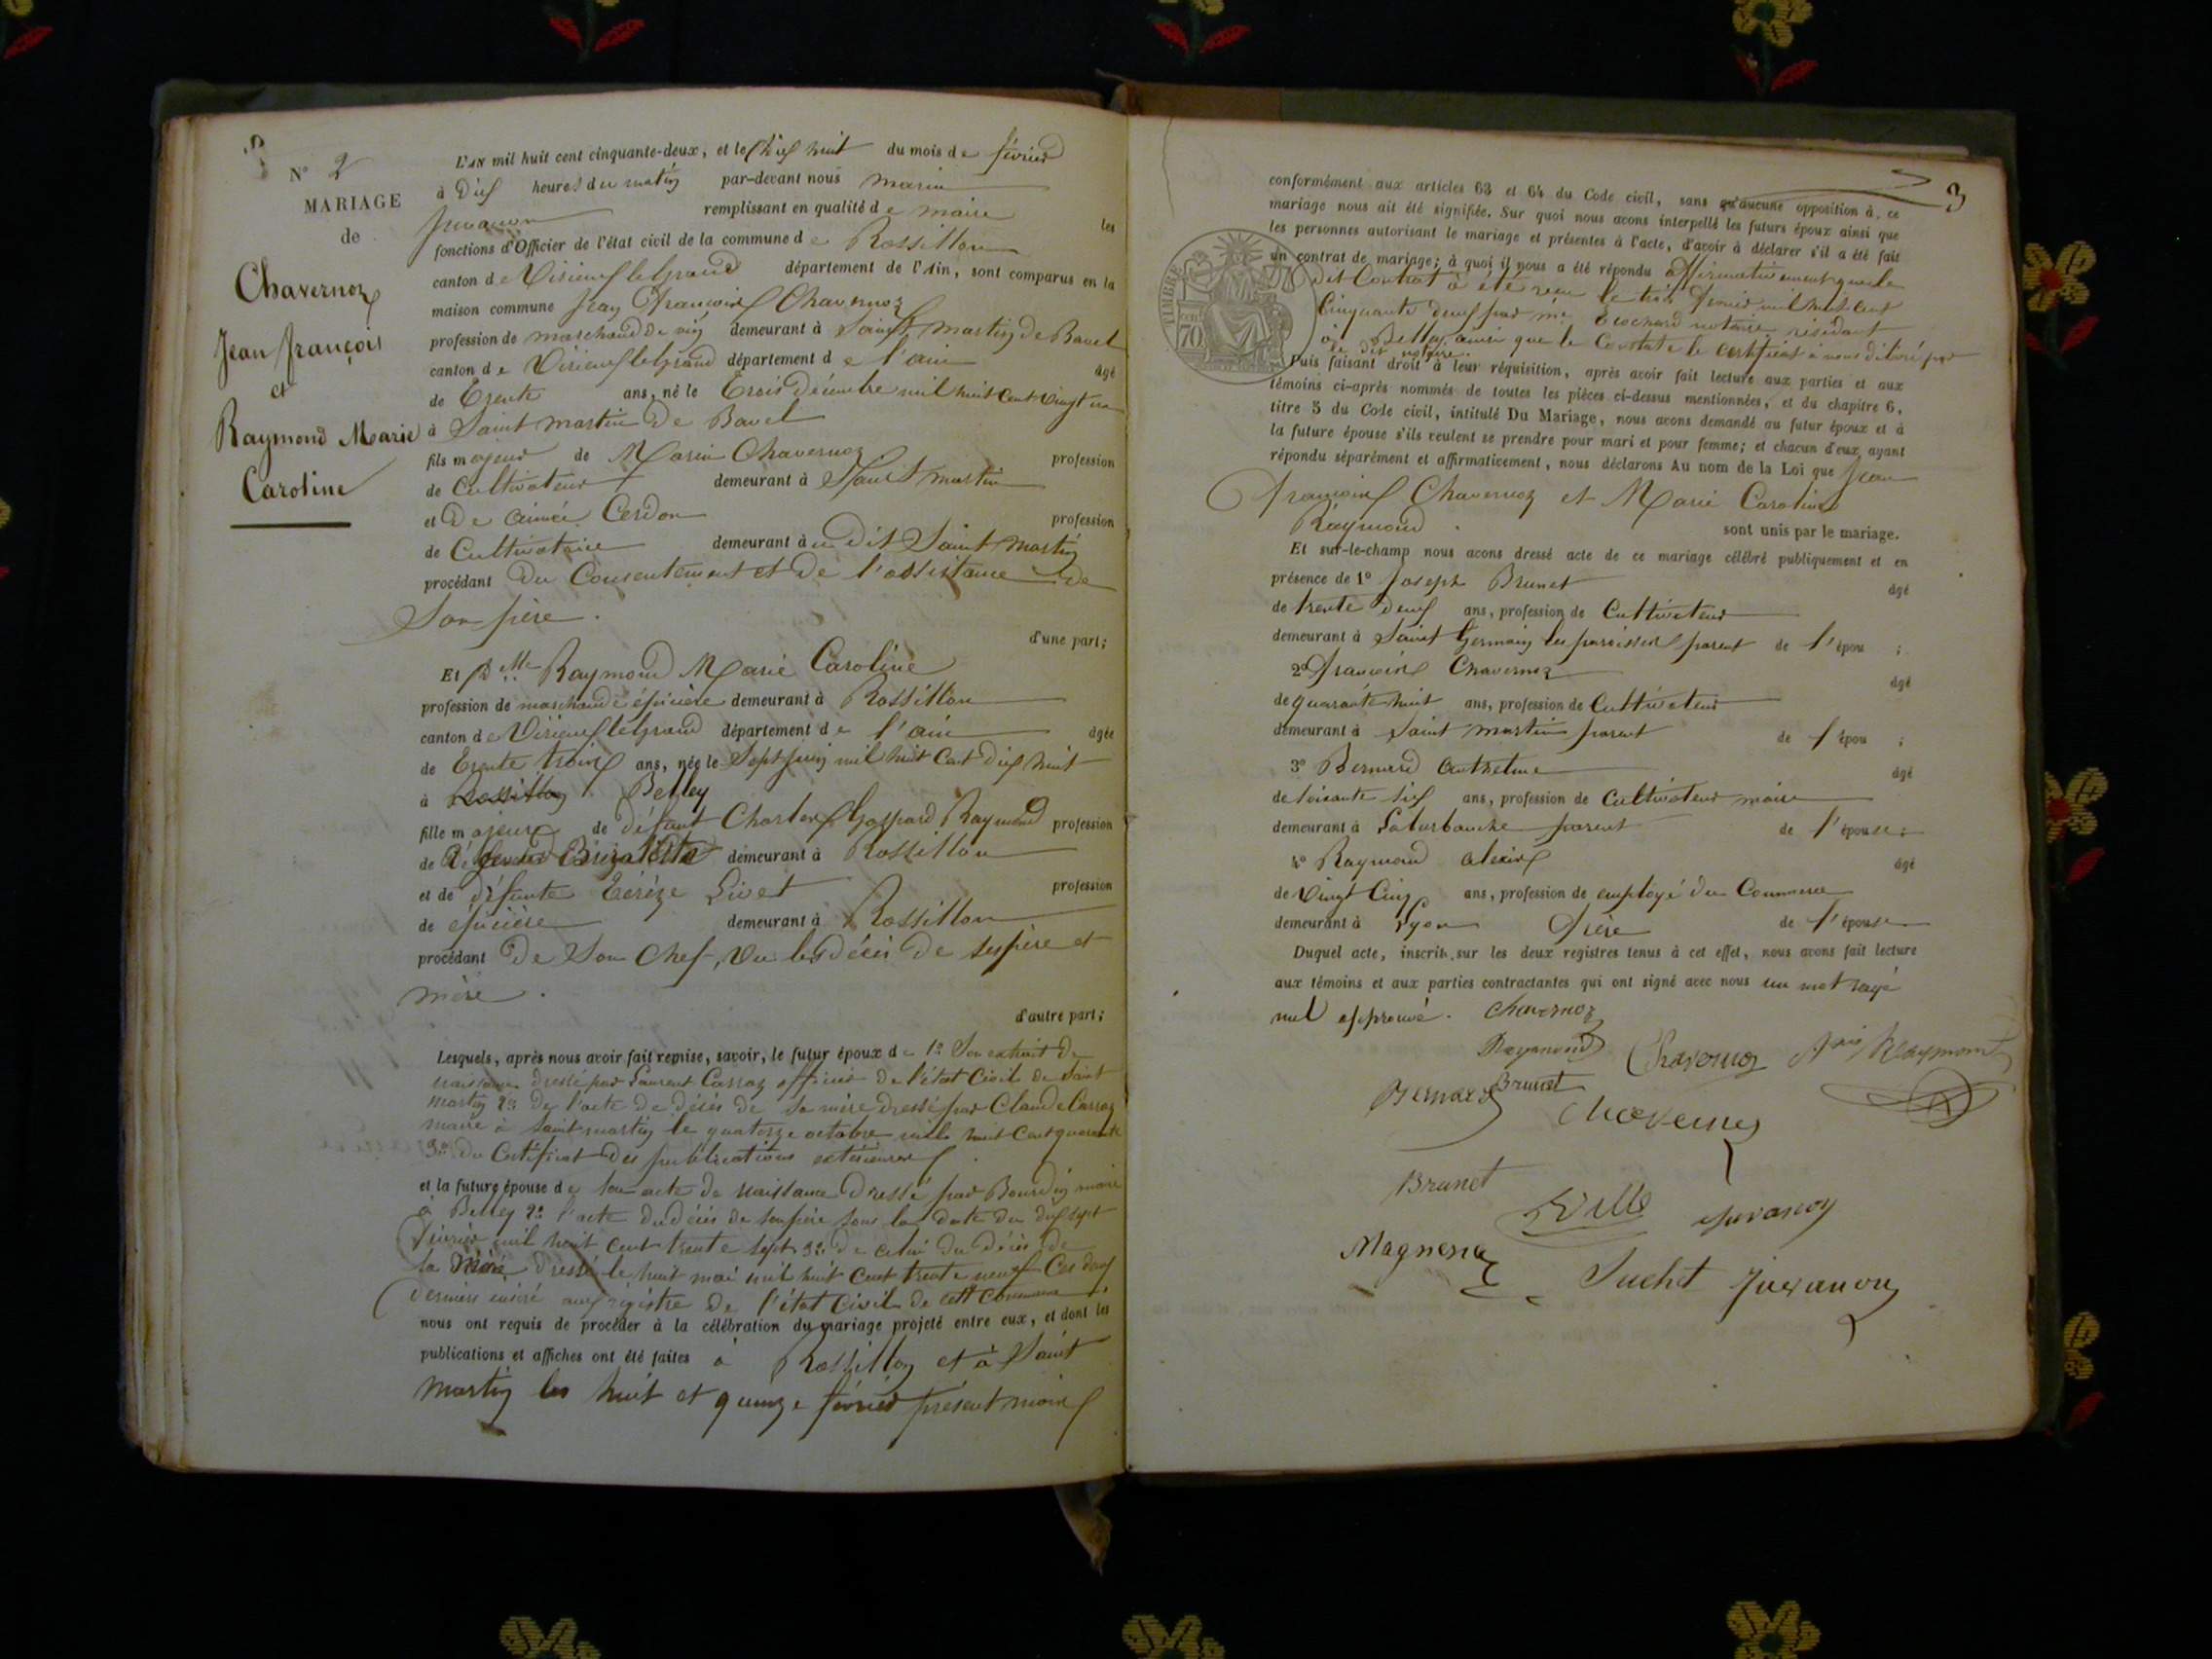 N° 2
MARIAGE
de
Chavernoz
Jean françois
et
Raymond Marie
Caroline
L'AN mil huit cent cinquante-deux, et le dix huit du mois de février
à Dix heures du matin par-devant nous marin
Juvanon remplissant en qualité de maire les
fonctions d'Officier de l'état civil de la commune de Rossillon
canton de Virieux le grand département de l'Ain, sont comparus en la
maison commune Jean François Chavernoz
profession de marchand de vin demeurant à Saint martin de Bavel
canton de Virieux le grand département de l'ain âgé
de Trente ans, né le Trois décembre mil huit cent vingt un
à Saint martin De Bavel
fils majeur de Marin Chavernoz profession
de Cultivateur demeurant à Saint martin
et De aimée Cerdon profession
de Cultivatrice demeurant à u dit Saint martin
procédant Du Consentement et De l'assistance de
Son père.
d'une part;
Et Dlle Raymond Marie Caroline
profession de marchande épicière demeurant à Rossillon
canton de Virieux le grand département de l'ain âgée
de Trente trois ans, née le Sept juin mil huit Cent dix huit
à Rossillon Belley
fille majeure de défunt Charles Gaspard Raymond profession
de demeurant à Rossillon
et de défunte Térèze Livet profession
de épicière demeurant à Rossillon
procédant De Son Chef, Vu les décès De ses père et
mère.
d'autre part;
Lesquels, après nous avoir fait remise, savoir, le futur époux de 1° Son extrait de
naissance dressé par Laurent Carraz officier de l'état Civil de Saint
martin 2° De l'acte De décès de Sa mère dressé par Claude Carraz
maire à Saint martin le quatorze octobre mil huit Cent quarante
3° Du Certificat Des publications extérieures
et la future épouse de son acte De naissance Dressé par Bourdin maire
à Belley 2° l'acte du décès de son père sous la date du dix sept
Février mil huit cent trente sept 3° De celui Du Décès De
la Mère dressé le huit mai mil huit cent trente neuf Ces deux
derniers inséré aux régistre De l'état Civil de cette Commune
nous ont requis de procéder à la célébration du mariage projeté entre eux, et dont les
publications et affiches ont été faites à Rossillon et à Saint
martin les huit et quinze février présent mois
3
conformément aux articles 63 et 64 du Code civil, sans qu'aucune opposition à ce
mariage nous ait été signifiée. Sur quoi nous avons interpellé les futurs époux ainsi que
les personnes autorisant le mariage et présentes à l'acte, d'avoir à déclarer s'il a été fait
un contrat de mariage; à quoi il nous a été répondu affirmativement que le
Dit Contrat à été reçu le trois Février mil huit cent
Cinquante deux par me notaire résidant
à Belley ainsi que le Constate le certificat à nous délivré par
le dit notaire.
TIMBRE
70
Puis faisant droit à leur réquisition, après avoir fait lecture aux parties et aux
témoins ci-après nommés de toutes les pièces ci-dessus mentionnées, et du chapitre 6,
titre 5 du Code civil, intitulé Du Mariage, nous avons demandé au futur époux et à
la future épouse s'ils veulent se prendre pour mari et pour femme; et chacun d'eux ayant
répondu séparément et affirmativement, nous déclarons Au nom de la Loi que Jean
François Chavernoz et Marie Caroline
Raymond. sont unis par le mariage.
Et sur-le-champ nous avons dressé acte de ce mariage célébré publiquement et en
présence de 1° Joseph Brunet âgé
de trente deux ans, profession de Cultivateur
demeurant à Saint Germain les paroisses parent de l'épou ;
2° François Chavernoz âgé
de quarante huit ans, profession de Cultivateur
demeurant à Saint Martin parent de l'épou ;
3° Bernard Anthelme âgé
de soixante six ans, profession de Cultivateur maire
demeurant à parent de l'épouse;
4° Raymond Alexis âgé
de Vingt Cinq ans, profession de employé du Commerce
demeurant à Lyon Frère de l'épouse
Duquel acte, inscrit sur les deux registres tenus à cet effet, nous avons fait lecture
aux témoins et aux parties contractantes qui ont signé avec nous un mot rayé
nul approuvé. Chavernoz
Raymond Chavernoz Raymond
Bernard Brunet
Chavernoz
Brunet
Ville Juvanon
Magnena
Suchet Juvanon